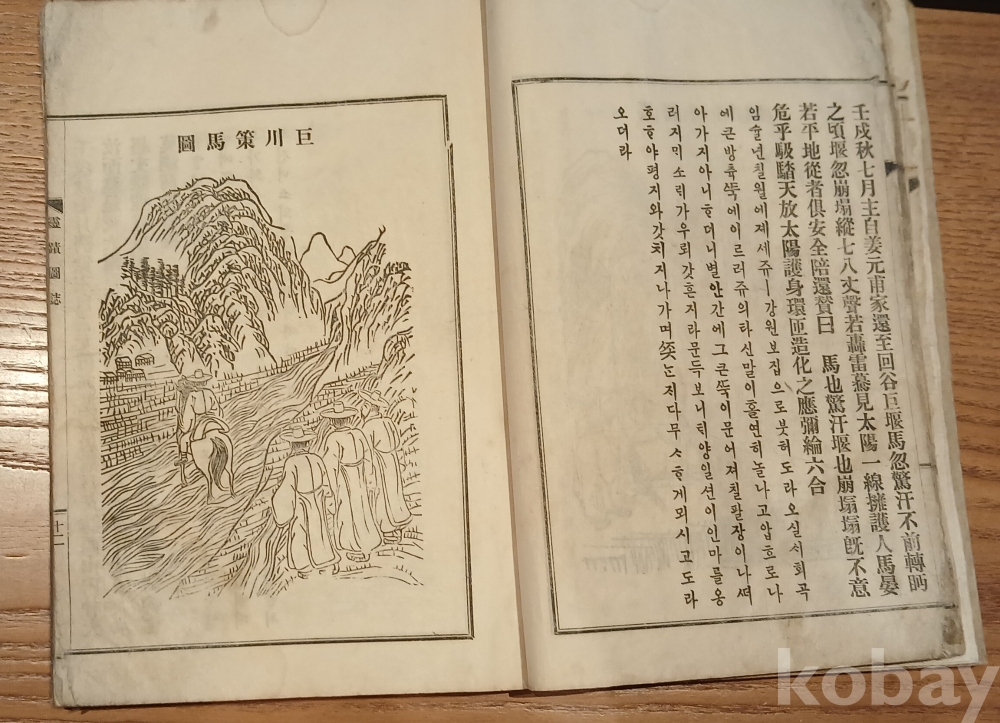 壬戌秋七月主自姜元甫家還至回谷巨堰馬忽驚汗不前轉眄
之頃堰忽崩塌縱七八丈聲若轟雷驀見太陽一線擁護人馬晏
若平地從者俱安全陪還贊曰 馬也驚汗堰也崩塌塌既不意
危乎吸 天放太陽護身環匝造化之應彌綸六合
임슐년칠월에제세쥬ㅣ강원보집으로붓허도라오실ᄉᆡ회곡
에큰방츅ᄯᅮᆨ에이르러쥬의타신말이홀연히놀나고압흐로나
아가지아니ᄒᆞ더니별안간에그큰ᄯᅮᆨ이문어져칠팔장이나ᄯᅥ
러지ᄆᆡ소ᄅᆡ가우뢰갓흔지라문득보니ᄐᆡ양일션이인마를옹
호ᄒᆞ야평지와갓치지나가며좃는ᄌᆡ다무ᄉᆞᄒᆞ게뫼시고도라
오더라
巨川策馬圖
靈蹟圖誌
十二
kobay